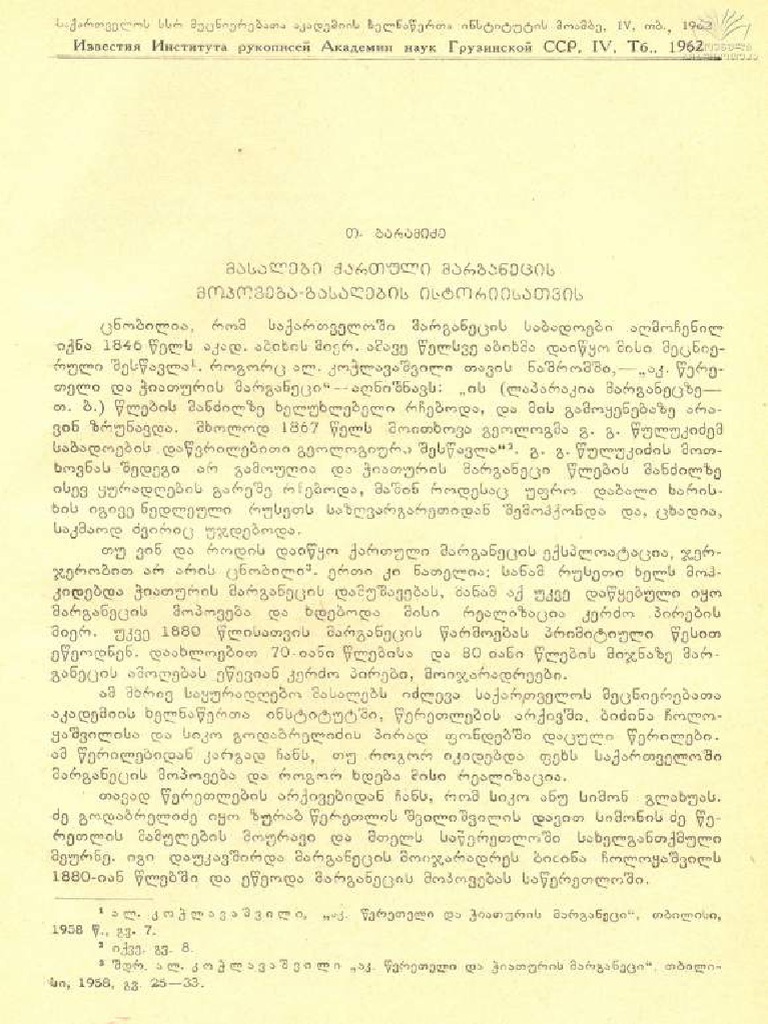 საქართველოს სსრ მეცნიერებათა აკადემიის ხელნაწერთა ინსტიტუტის მოამბე, IV, თბ., 1962
Известия Института рукописей Академии наук Грузинской ССР, IV, Тб., 1962
თ. ბარამიძე
მასალები ქართული მარგანეცის
მოპოვება-გასაღების ისტორიისათვის
ცნობილია, რომ საქართველოში მარგანეცის საბადოები აღმოჩენილ
იქნა 1846 წელს აკად. აბიხის მიერ. ამავე წელსვე აბიხმა დაიწყო მისი მეცნიე-
რული შესწავლა¹. როგორც ალ. კოჭლავაშვილი თავის ნაშრომში,—„აკ. წერე-
თელი და ჭიათურის მარგანეცი“—აღნიშნავს: „ის (ლაპარაკია მარგანეცზე—
თ. ბ.) წლების მანძილზე ხელუხლებელი რჩებოდა, და მის გამოყენებაზე არა-
ვინ ზრუნავდა. მხოლოდ 1867 წელს მოითხოვა გეოლოგმა გ. გ. წულუკიძემ
საბადოების დაწვრილებითი გეოლოგიური შესწავლა“². გ. გ. წულუკიძის მოთ-
ხოვნას შედეგი არ გამოუღია და ჭიათურის მარგანეცი წლების მანძილზე
ისევ ყურადღების გარეშე რჩებოდა, მაშინ როდესაც უფრო დაბალი ხარის-
ხის იგივე ნედლეული რუსეთს საზღვარგარეთიდან შემოჰქონდა და, ცხადია,
საკმაოდ ძვირიც უჯდებოდა.
თუ ვინ და როდის დაიწყო ქართული მარგანეცის ექსპლოატაცია, ჯერ-
ჯერობით არ არის ცნობილი³. ერთი კი ნათელია: სანამ რუსეთი ხელს მოჰ-
კიდებდა ჭიათურის მარგანეცის დამუშავებას, მანამ აქ უკვე დაწყებული იყო
მარგანეცის მოპოვება და ხდებოდა მისი რეალიზაცია კერძო პირების
მიერ. უკვე 1880 წლისათვის მარგანეცის წარმოებას პრიმიტიული წესით
ეწეოდნენ. დაახლოებით 70-იანი წლებისა და 80 იანი წლების მიჯნაზე მარ-
განეცის ამოღებას ეწევიან კერძო პირები, მოიჯარადრეები.
ამ მხრივ საყურადღებო მასალებს იძლევა საქართველოს მეცნიერებათა
აკადემიის ხელნაწერთა ინსტიტუტში, წერეთლების არქივში, ბიძინა ჩოლო-
ყაშვილისა და სიკო გოდაბრელიძის პირად ფონდებში დაცული წერილები.
ამ წერილებიდან კარგად ჩანს, თუ როგორ იკიდებდა ფეხს საქართველოში
მარგანეცის მოპოვება და როგორ ხდება მისი რეალიზაცია.
თავად წერეთლების არქივებიდან ჩანს, რომ სიკო ანუ სიმონ გლახუას.
ძე გოდაბრელიძე იყო ზურაბ წერეთლის შვილიშვილის დავით სიმონის ძე წე-
რეთლის მამულების მოურავი და მთელს საწერეთლოში სახელგანთქმული
მეურნე. იგი დაუკავშირდა მარგანეცის მოიჯარადრეს ბიძინა ჩოლოყაშვილს
1880-იან წლებში და ეწეოდა მარგანეცის მოპოვებას საწერეთლოში.
¹ ალ. კოჭლავაშვილი, „აკ. წერეთელი და ჭიათურის მარგანეცი“, თბილისი,
1958 წ., გვ. 7.
² იქვე, გვ. 8.
³ შდრ. ალ. კოჭლავაშვილი „აკ. წერეთელი და ჭიათურის მარგანეცი“. თბილი-
სი, 1958, გვ. 25—33.